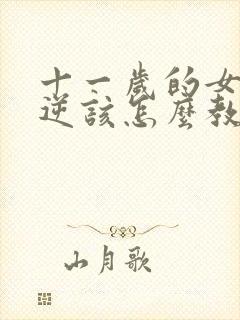 十一歲的女
逆該怎麼教
山月歌